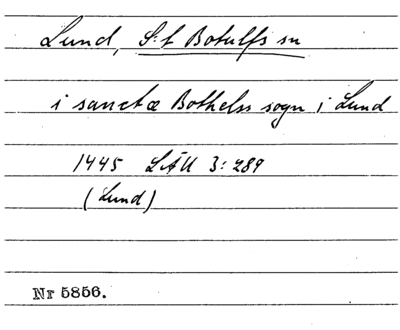 Lund, S:t Botulfs sn
i sanctæ Bothelss sogn i Lund
1445 LÄU 3:289
(Lund)
Nr 5856.